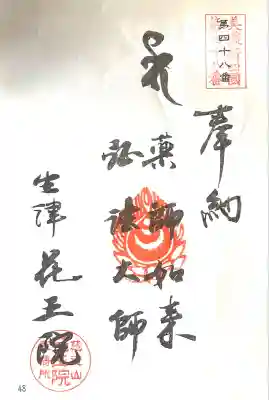 第四十八番
奉納
薬師如来
弘法大師
生津
花王院
48